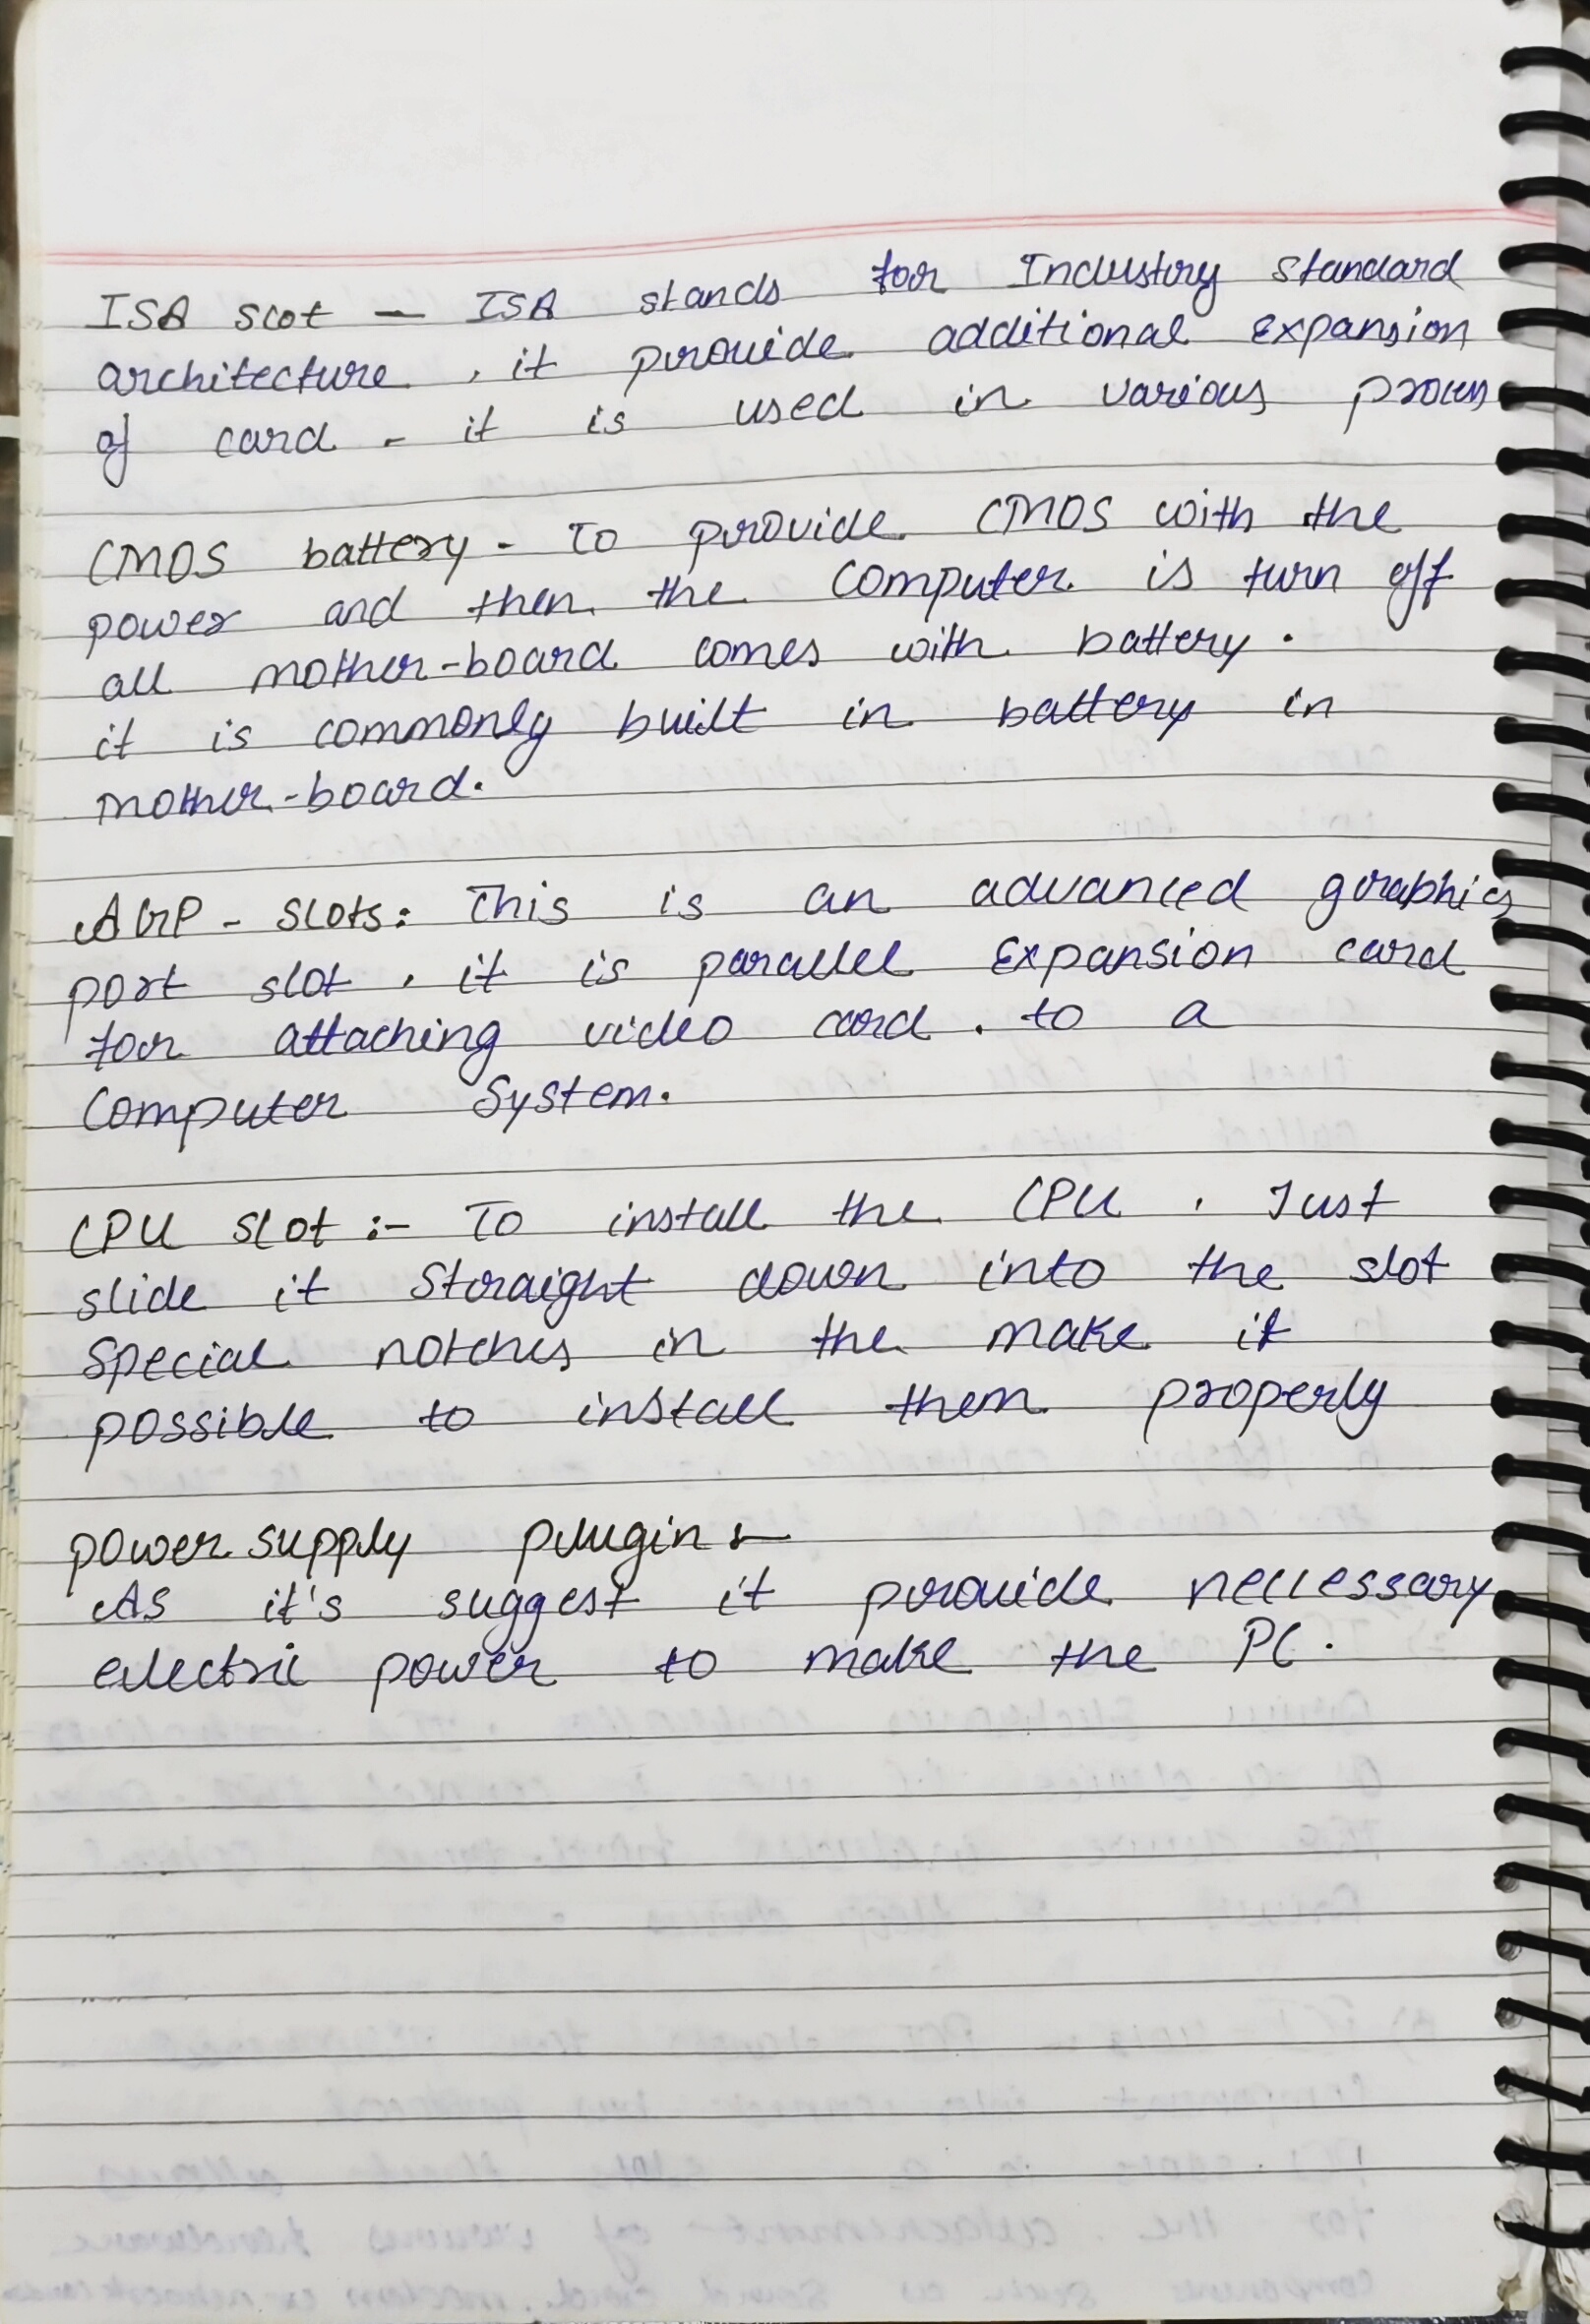 ISA slot — ISA stands for Industry standard
architecture , it provide additional Expansion
of card - it is used in various
CMOS battery - To provide CMOS with the
power and then the Computer is turn off
all mother-board comes with battery .
it is commonly built in battery in
mother-board.
AGP - slots: This is an advanced graphics
port slot , it is parallel Expansion card
for attaching video card . to a
Computer System.
CPU slot :- To install the CPU , Just
slide it Straight down into the slot
Special notches in the make it
possible to install them properly
power supply plugin :-
As it's suggest it provide neccessary
electric power to make the PC .